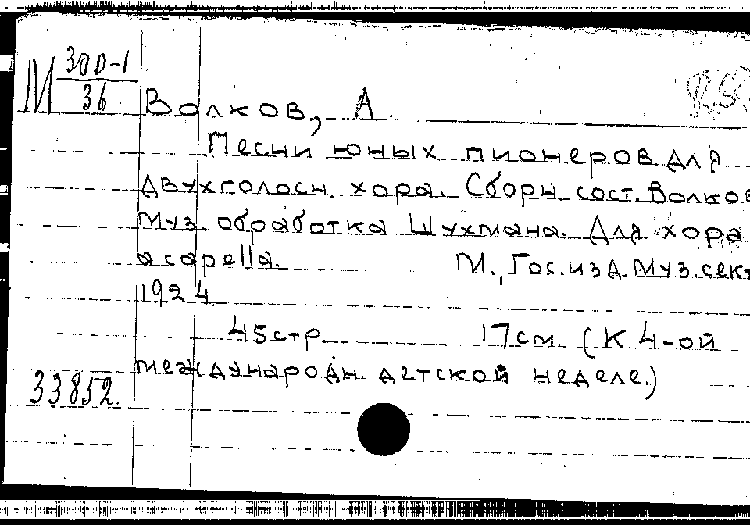 М 300-1
36
Волков, А
Песни юных пионеров для
двухголосн. хора. Сборн. сост. Волков
муз. обработка Шухмана. Для хора
acapella. М., Гос. изд. муз. сект
1924
45 стр 17см. (К 4-ой
международн. детской неделе.)
33852.